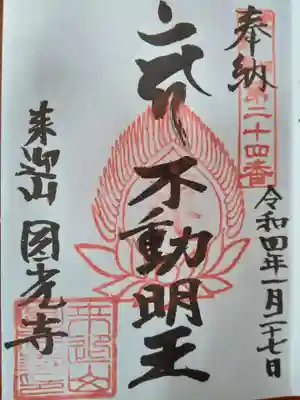 奉納
第二十四番
令和四年一月二十七日
不動明王
来迎山 圓光寺